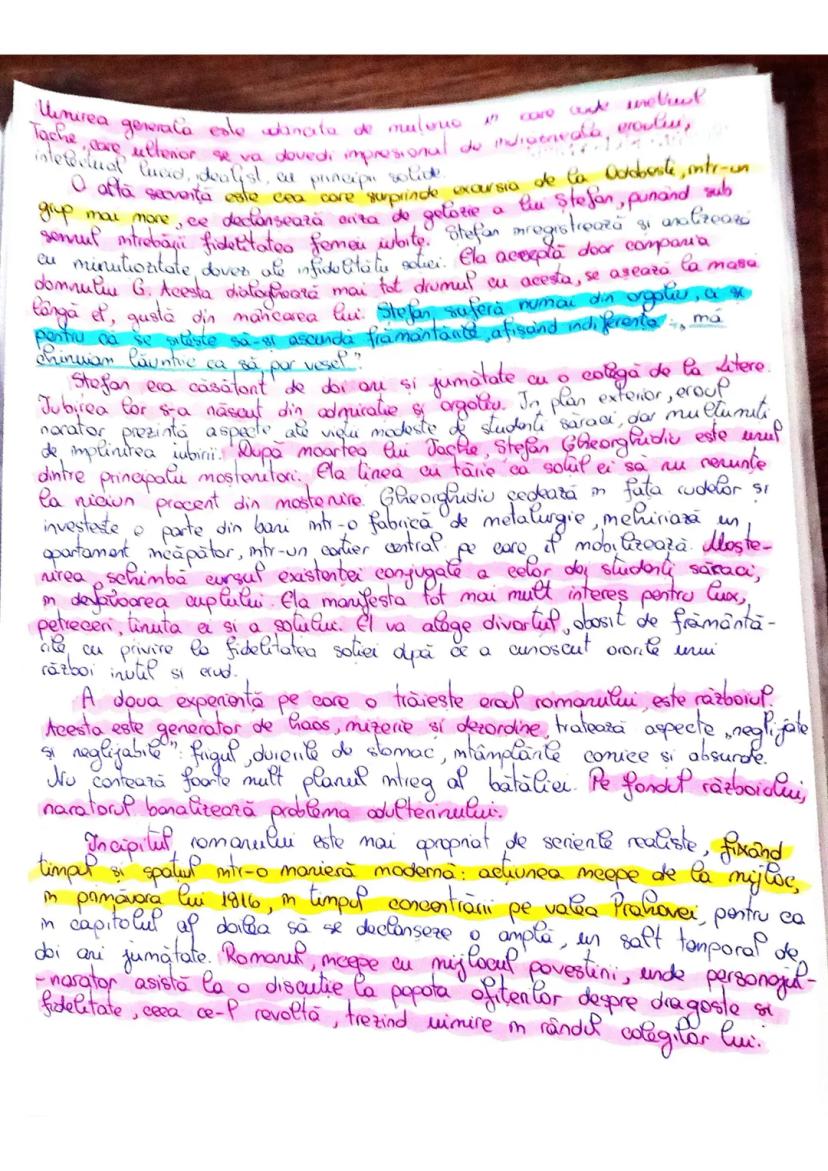 Uimirea generală este adâncită de                     care            unchiul
Tache, care, ulterior se va dovedi impresionat de indrăzneala eroului,
intelectual lucid, idealist, cu principii solide.
O altă secvență este cea care surprinde excursia de la Odobești, într-un
grup mai mare, ce declansează criza de gelozie a lui Ștefan, punând sub
semnul întrebării fidelitatea femeii iubite. Ștefan înregistrează și analizează
cu minutiozitate dovezi ale infidelității soției. Ela acceptă doar compania
domnului G. Acesta dialoghează mai tot drumul cu acesta, se asează la masa
lângă el, gustă din mâncarea lui. Ștefan suferă numai din orgoliu, ci și
pentru că se silește să-și ascundă frământările, afișând indiferență: „mă
chinuiam lăuntric ca să par vesel”.
Ștefan era căsătorit de doi ani și jumătate cu o colegă de la Litere.
Iubirea lor s-a născut din admirație și orgoliu. În plan exterior, eroul
narator prezintă aspecte ale vieții modeste de studenți săraci, dar mulțumiți
de împlinirea iubirii. După moartea lui Tache, Ștefan Gheorghidiu este unul
dintre principalii moștenitori. Ela ținea cu tărie ca soțul ei să nu renunțe
la niciun procent din moștenire. Gheorghidiu cedează în fața rudelor și
investește o parte din bani într-o fabrică de metalurgie, închiriază un
apartament încăpător, într-un cartier central pe care îl mobilizează. Moște-
nirea schimbă cursul existenței conjugale a celor doi studenți săraci,
în defavoarea cuplului. Ela manifestă tot mai mult interes pentru lux,
petreceri, ținuta ei și a soțului. El va alege divorțul, obosit de frământă-
rile cu privire la fidelitatea soției după ce a cunoscut ororile unui
război inutil și crud.
A doua experiență pe care o trăiește eroul romanului, este războiul.
Acesta este generator de haos, mizerie și dezordine, tratează aspecte „neglijate
și neglijabile”: frigul, durerile de stomac, întâmplările comice și absurde.
Nu contează foarte mult planul întreg al bătăliei. Pe fondul războiului,
naratorul banalizează problema adulterinului.
Incipitul romanului este mai apropriat de scrierile realiste, fixând
timpul și spațiul într-o manieră modernă: acțiunea începe de la mijloc,
în primăvara lui 1916, în timpul concentrării pe valea Prahovei, pentru ca
în capitolul al doilea să se declanseze o amplă, un salt temporal de
doi ani jumătate. Romanul, începe cu mijlocul povestirii, unde personajul-
-narator asistă la o discuție la popota ofițerilor despre dragoste și
fidelitate, ceea ce-l revoltă, trezind uimire în rândul colegilor lui.